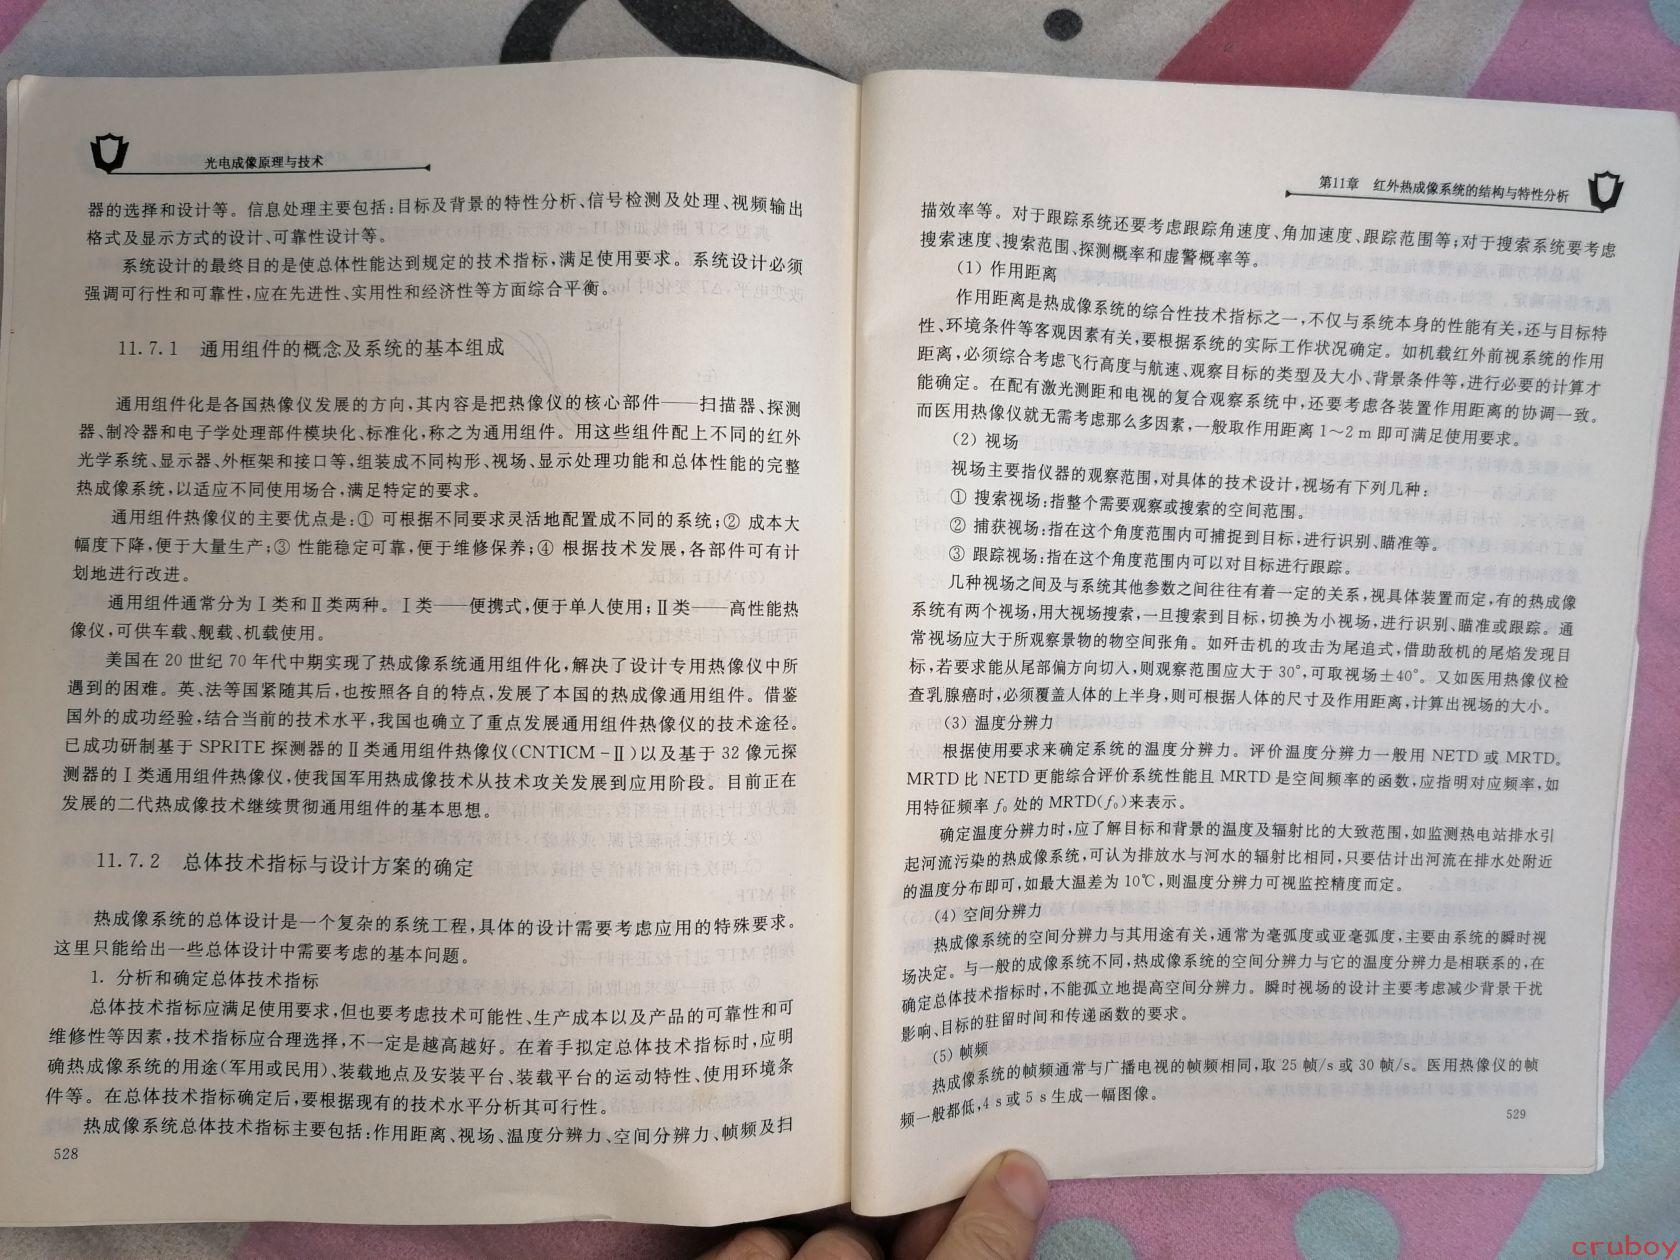 光电成像原理与技术
器的选择和设计等。信息处理主要包括:目标及背景的特性分析、信号检测及处理、视频输出
格式及显示方式的设计、可靠性设计等。
系统设计的最终目的是使总体性能达到规定的技术指标,满足使用要求。系统设计必须
强调可行性和可靠性,应在先进性、实用性和经济性等方面综合平衡。
11.7.1 通用组件的概念及系统的基本组成
通用组件化是各国热像仪发展的方向,其内容是把热像仪的核心部件——扫描器、探测
器、制冷器和电子学处理部件模块化、标准化,称之为通用组件。用这些组件配上不同的红外
光学系统、显示器、外框架和接口等,组装成不同构形、视场、显示处理功能和总体性能的完整
热成像系统,以适应不同使用场合,满足特定的要求。
通用组件热像仪的主要优点是:① 可根据不同要求灵活地配置成不同的系统;② 成本大
幅度下降,便于大量生产;③ 性能稳定可靠,便于维修保养;④ 根据技术发展,各部件可有计
划地进行改进。
通用组件通常分为Ⅰ类和Ⅱ类两种。Ⅰ类——便携式,便于单人使用;Ⅱ类——高性能热
像仪,可供车载、舰载、机载使用。
美国在 20 世纪 70 年代中期实现了热成像系统通用组件化,解决了设计专用热像仪中所
遇到的困难。英、法等国紧随其后,也按照各自的特点,发展了本国的热成像通用组件。借鉴
国外的成功经验,结合当前的技术水平,我国也确立了重点发展通用组件热像仪的技术途径。
已成功研制基于 SPRITE 探测器的Ⅱ类通用组件热像仪(CNTICM-Ⅱ)以及基于 32 像元探
测器的Ⅰ类通用组件热像仪,使我国军用热成像技术从技术攻关发展到应用阶段。目前正在
发展的二代热成像技术继续贯彻通用组件的基本思想。
11.7.2 总体技术指标与设计方案的确定
热成像系统的总体设计是一个复杂的系统工程,具体的设计需要考虑应用的特殊要求。
这里只能给出一些总体设计中需要考虑的基本问题。
1. 分析和确定总体技术指标
总体技术指标应满足使用要求,但也要考虑技术可能性、生产成本以及产品的可靠性和可
维修性等因素,技术指标应合理选择,不一定是越高越好。在着手拟定总体技术指标时,应明
确热成像系统的用途(军用或民用)、装载地点及安装平台、装载平台的运动特性、使用环境条
件等。在总体技术指标确定后,要根据现有的技术水平分析其可行性。
热成像系统总体技术指标主要包括:作用距离、视场、温度分辨力、空间分辨力、帧频及扫
528
第11章 红外热成像系统的结构与特性分析
描效率等。对于跟踪系统还要考虑跟踪角速度、角加速度、跟踪范围等;对于搜索系统要考虑
搜索速度、搜索范围、探测概率和虚警概率等。
(1) 作用距离
作用距离是热成像系统的综合性技术指标之一,不仅与系统本身的性能有关,还与目标特
性、环境条件等客观因素有关,要根据系统的实际工作状况确定。如机载红外前视系统的作用
距离,必须综合考虑飞行高度与航速、观察目标的类型及大小、背景条件等,进行必要的计算才
能确定。在配有激光测距和电视的复合观察系统中,还要考虑各装置作用距离的协调一致。
而医用热像仪就无需考虑那么多因素,一般取作用距离 1～2 m 即可满足使用要求。
(2) 视场
视场主要指仪器的观察范围,对具体的技术设计,视场有下列几种:
① 搜索视场:指整个需要观察或搜索的空间范围。
② 捕获视场:指在这个角度范围内可捕捉到目标,进行识别、瞄准等。
③ 跟踪视场:指在这个角度范围内可以对目标进行跟踪。
几种视场之间及与系统其他参数之间往往有着一定的关系,视具体装置而定,有的热成像
系统有两个视场,用大视场搜索,一旦搜索到目标,切换为小视场,进行识别、瞄准或跟踪。通
常视场应大于所观察景物的物空间张角。如歼击机的攻击为尾追式,借助敌机的尾焰发现目
标,若要求能从尾部偏方向切入,则观察范围应大于 30°,可取视场±40°。又如医用热像仪检
查乳腺癌时,必须覆盖人体的上半身,则可根据人体的尺寸及作用距离,计算出视场的大小。
(3) 温度分辨力
根据使用要求来确定系统的温度分辨力。评价温度分辨力一般用 NETD 或 MRTD。
MRTD 比 NETD 更能综合评价系统性能且 MRTD 是空间频率的函数,应指明对应频率,如
用特征频率 f₀ 处的 MRTD(f₀)来表示。
确定温度分辨力时,应了解目标和背景的温度及辐射比的大致范围,如监测热电站排水引
起河流污染的热成像系统,可认为排放水与河水的辐射比相同,只要估计出河流在排水处附近
的温度分布即可,如最大温差为 10℃,则温度分辨力可视监控精度而定。
(4) 空间分辨力
热成像系统的空间分辨力与其用途有关,通常为毫弧度或亚毫弧度,主要由系统的瞬时视
场决定。与一般的成像系统不同,热成像系统的空间分辨力与它的温度分辨力是相联系的,在
确定总体技术指标时,不能孤立地提高空间分辨力。瞬时视场的设计主要考虑减少背景干扰
影响、目标的驻留时间和传递函数的要求。
(5) 帧频
热成像系统的帧频通常与广播电视的帧频相同,取 25 帧/s 或 30 帧/s。医用热像仪的帧
频一般都低,4 s 或 5 s 生成一幅图像。
529
cruboy